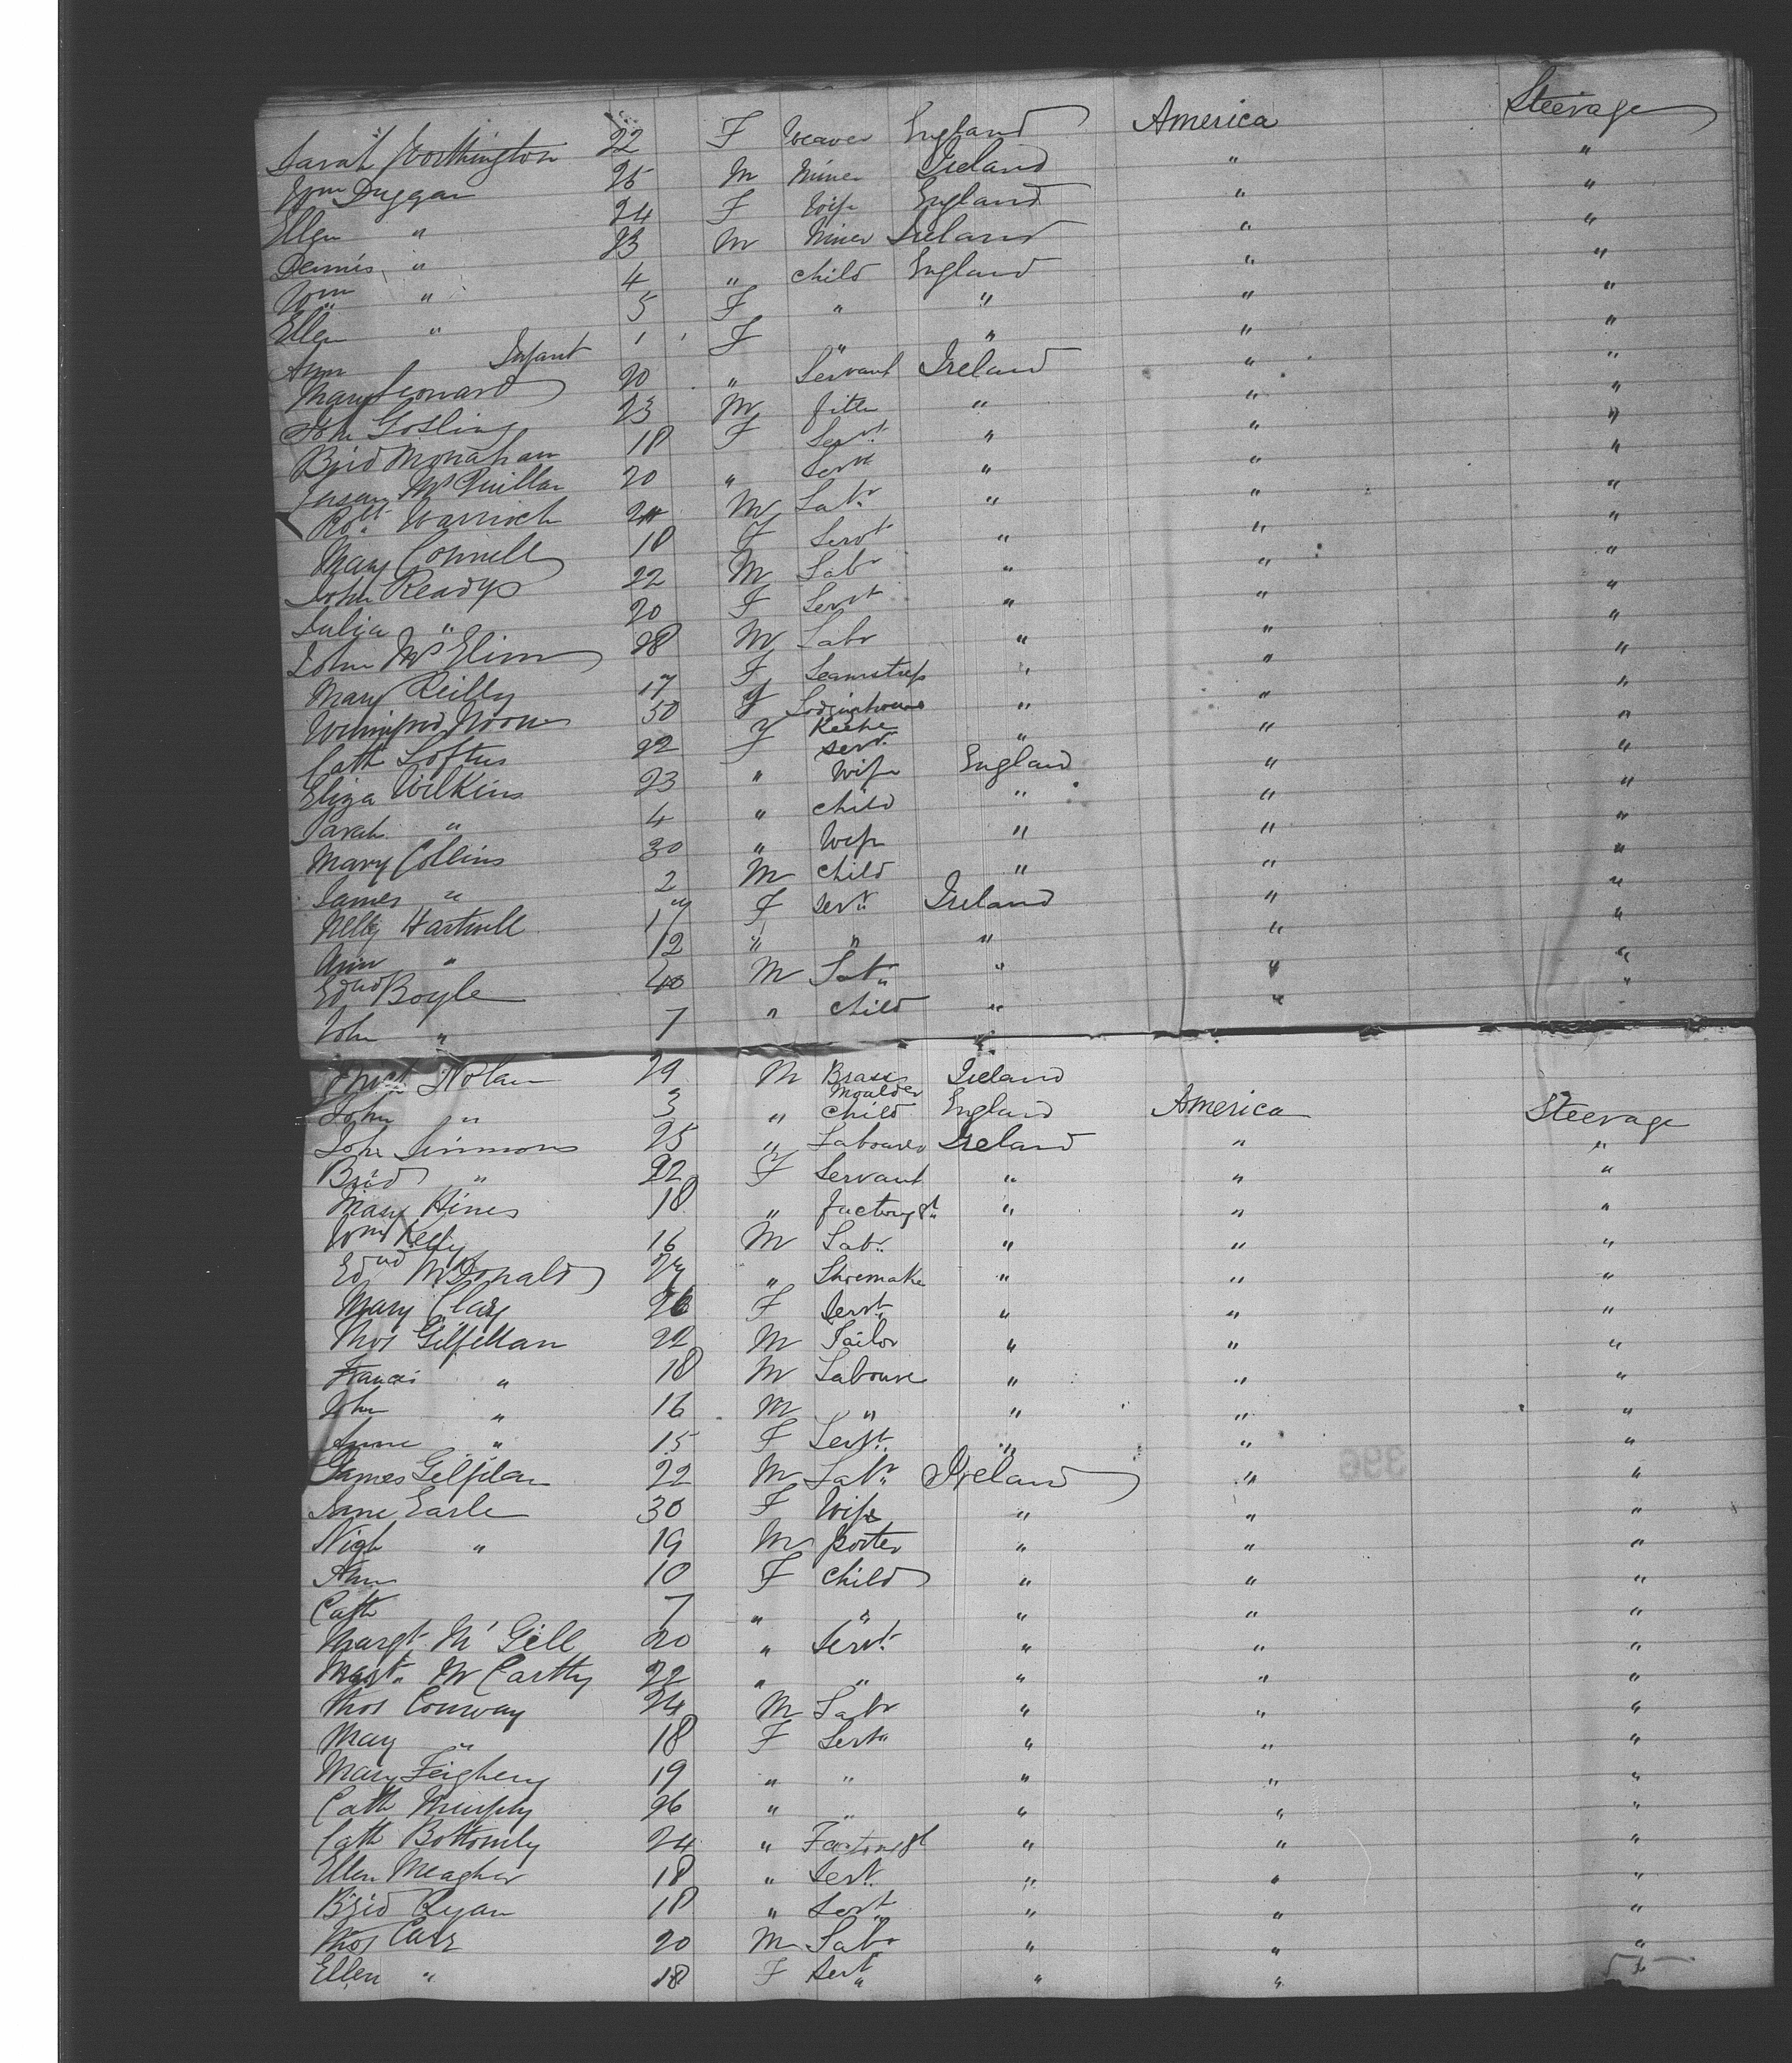 Sarah Worthington 22 F Weaver England America Steerage
Wm Duggan 25 M Miner Ireland " "
Ellen " 24 F Wife England " "
Dennis " 23 M Miner Ireland " "
Wm " 4 " child England " "
Ellen " 5 F " " " "
Ann Infant 1 F " " " "
Mary Leonard 20 " Servant Ireland " "
John Gosling 23 M fitter " " "
Brid Monahan 18 F Servt " " "
McQuillan 20 " Servt " " "
Robt Warnick M Labr " " "
Mary Connell 18 F Servt " " "
John Ready 22 M Labr " " "
Julia " 20 F Servt " " "
John McElinn 28 M Labr " " "
Mary Reilly 17 F Seamstress " " "
Winnifred 50 F Lodginhouse Keeper " " "
Cath Loftus 22 F servt " " "
Eliza Wilkins 23 " Wife England " "
Sarah " 4 " child " " "
Mary Collins 30 " Wife " " "
James " 2 M child " " "
Nelly Hartnell 17 F servt Ireland " "
Ann " 12 " " " " "
Edwd Boyle 40 M Labr " " "
John " 7 " child " " "
Nolan 29 M Brass Moulder Ireland
John " 3 " child England America Steerage
John Simmons 25 " Labourer Ireland " "
Brid " 22 F Servant " " "
Mary Hines 18 " factory " " "
Wm Kelly 16 M Labr " " "
Edwd McDonald 27 " Shoemaker " " "
Mary Clary 26 F Servt " " "
Thos Gilfillan 22 M Tailor " " "
Francis " 18 M Labourer " " "
John " 16 M " " " "
Anne " 15 F Servt " " "
James Gilfilan 22 M Labr Ireland " "
Jane Earle 30 F Wife " " "
" 19 M porter " " "
Ann 10 F child " " "
Cath 7 " " " " "
Margt McGill 20 " Servt " " "
Margt McCarthy 22 " " " " "
Thos Conway 24 M Labr " " "
Mary " 18 F Servt " " "
Mary Feighery 19 " " " " "
Cath Murphy 26 " " " " "
Cath Bottomly 24 " Factory " " "
Ellen Meagher 18 " Servt " " "
Brid Ryan 18 " Servt " " "
Thos Carr 20 M Labr " " "
Ellen " 18 F Servt " " "